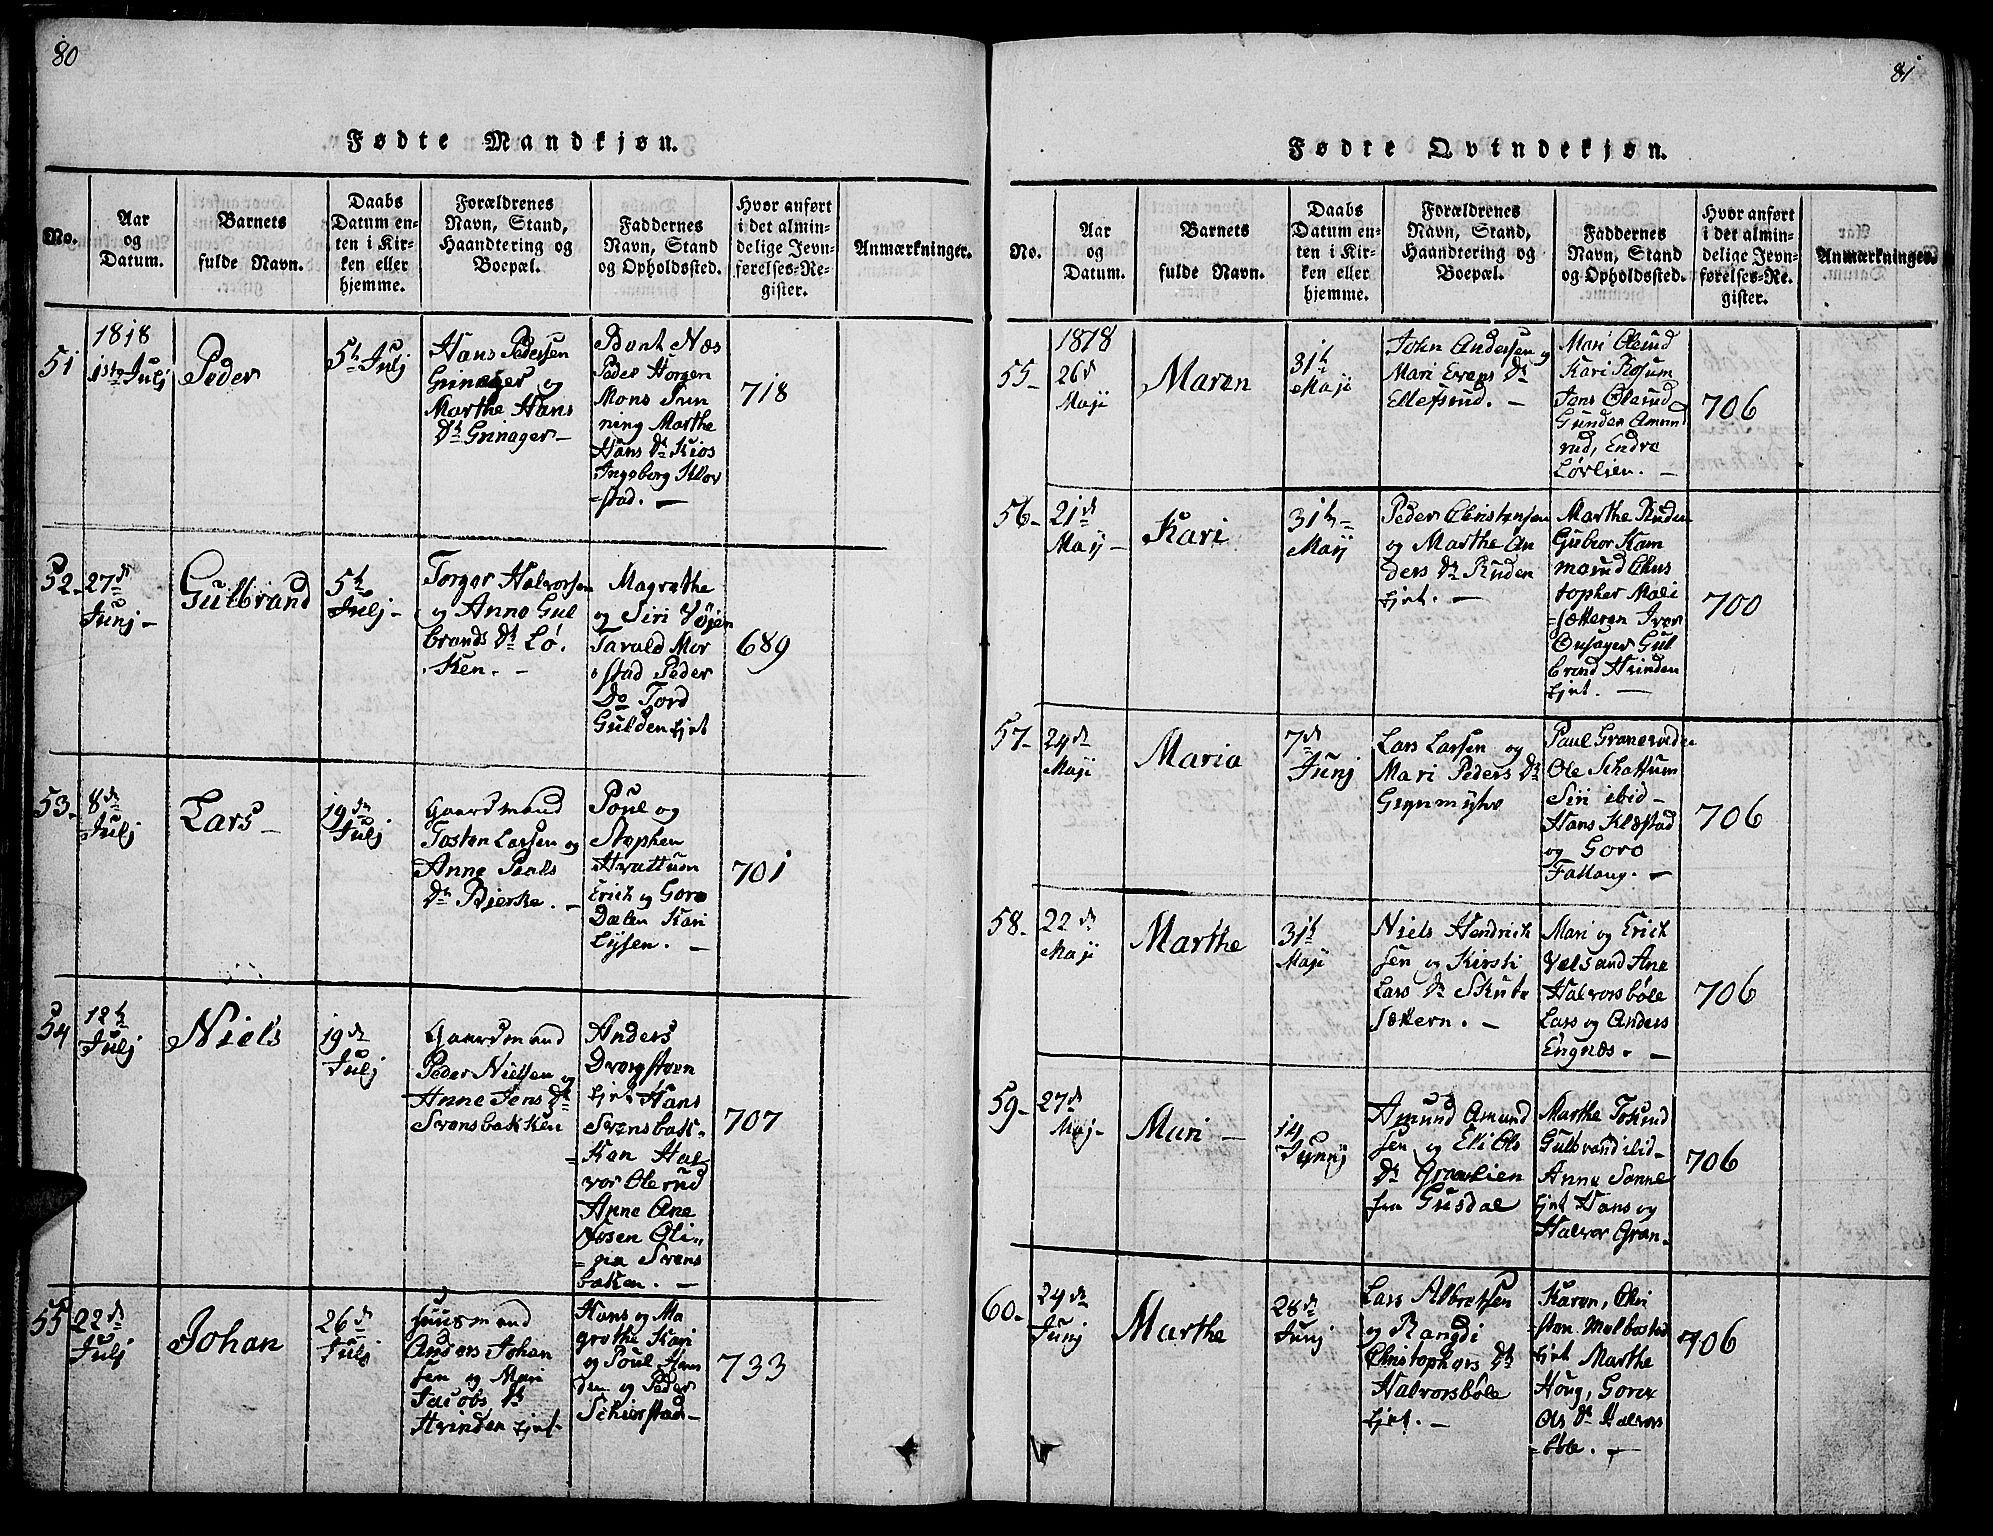 80
Fødte Mandkjøn.
No.
Aar
og
Datum.
Barnets
fulde Navn.
Daabs
Datum en-
ten i Kir-
ken eller
hjemme.
Forældrenes
Navn, Stand,
Haandtering og
Boepæl.
Faddernes
Navn, Stand
og Opholdssted.
Hvor anført
i det almin-
delige Jevn-
førelses-Re-
gister.
Anmærkninger.
51
1818
1ste Julj
Peder
5h Julj
Hans Pedersen
Grinager og
Marthe Hans
Dr Grinager-
Bent Næs
Peder Horgen
Mons Sun
ning Marthe
Hans Dr Kios
Ingeborg Klov
=stad. -
718
52-
27de
Junj-
Gulbrand
5h
Julj-
Torger Halvorsen
og Anne Gul
brands Dr Lø-
ken. -
Magrethe
og Siri Vøjen
Tarald Mor
stad Peder
Do Tord
Gulden Ejet
689
53-
8de
=Julj
Lars-
19de
Julj
Gaardmand
Tosten Larsen og
Anne Paals
Dr Bjerke. -
Poul og
Stephen
Hvattum
Erich og Goro
Dælen Kari
Lysen. -
701
54
12h
Julj
Niels
19de
Julj
Gaardmand
Peder Nielsen og
Anne Jens Dr
Svensbakken
Anders
Dvergsteen
Ejet Hans
Svensbak-
=ken Hal-
vor Olerud
Anne Ane
Josen Oli-
=na Svens
bakken. -
707
55
22de
Julj
Johan
26de
Julj
Huusmand
Anders Johan
sen og Mari
Jacobs Dr
Hvinden Ejet
Hans og Ma
grethe Kari
og Poul Hvin
den og Peder
Schiørstad-
733
81
Fødte Qvindekjøn.
No.
Aar
og
Datum.
Barnets
fulde Navn.
Daabs
Datum en-
ten i Kir-
ken eller
hjemme.
Forældrenes
Navn, Stand,
Haandtering og
Boepæl.
Faddernes
Navn, Stand
og Opholdssted.
Hvor anført
i det almin-
delige Jevn-
førelses-Re-
gister.
Anmærkninger.
55-
1818
26de
Maji
Maren
31h
Maji
John Andersen og
Mari Evens Dr
Ellefsrud. -
Mari Olerud
Kari Rosum
Jens Olerud
Gunder Amund
rud, Endre
Løvlien. -
706
56-
21de
Maij-
Kari
31h-
Maij
Peder Christensen
og Marthe An
ders Dr Ruden
Ejet. -
Marthe Ruden
Gubior Kam
merud Chris
topher Mali
=sætteren Iver
Onsager Gul
brand Hvinden
Ejet. -
700
57-
24de
Maji
Maria
7de
Junj
Lars Larsen og
Mari Peders Dr
Gegnmyhre
Paul
Ole Schattum
Siri ibid-
Hans Klæstad
og Goro
Fallang. -
706
58-
22de
Maji
Marthe
31h
Maji
Niels Hendrich
sen og Kirsti
Lars Dr Skute
Sættern. -
Mari og Erich
Velsand Ane
Halvorsbøle
Lars og Anders
Engnæs. -
706
59-
27de
Maj-
Mari -
14
Junij
Amund Amund
sen og Eli Ols
Dr Granlien
fra Gusdal
Marthe Tokerud
Gulbrand ibid-
Anne Sønne
Ejet Hans og
Halvor Gran-
706
60-
24de
Junj
Marthe
28de
Junj
Lars Albretsen
og Rangdi
Christophers Dr
Halvorsbøle
Ejet. -
Karen, Chri
=sten Melbostad
Ejet Marthe
Houg, Goro
Ols Dr Halvors
=bøle. -
706